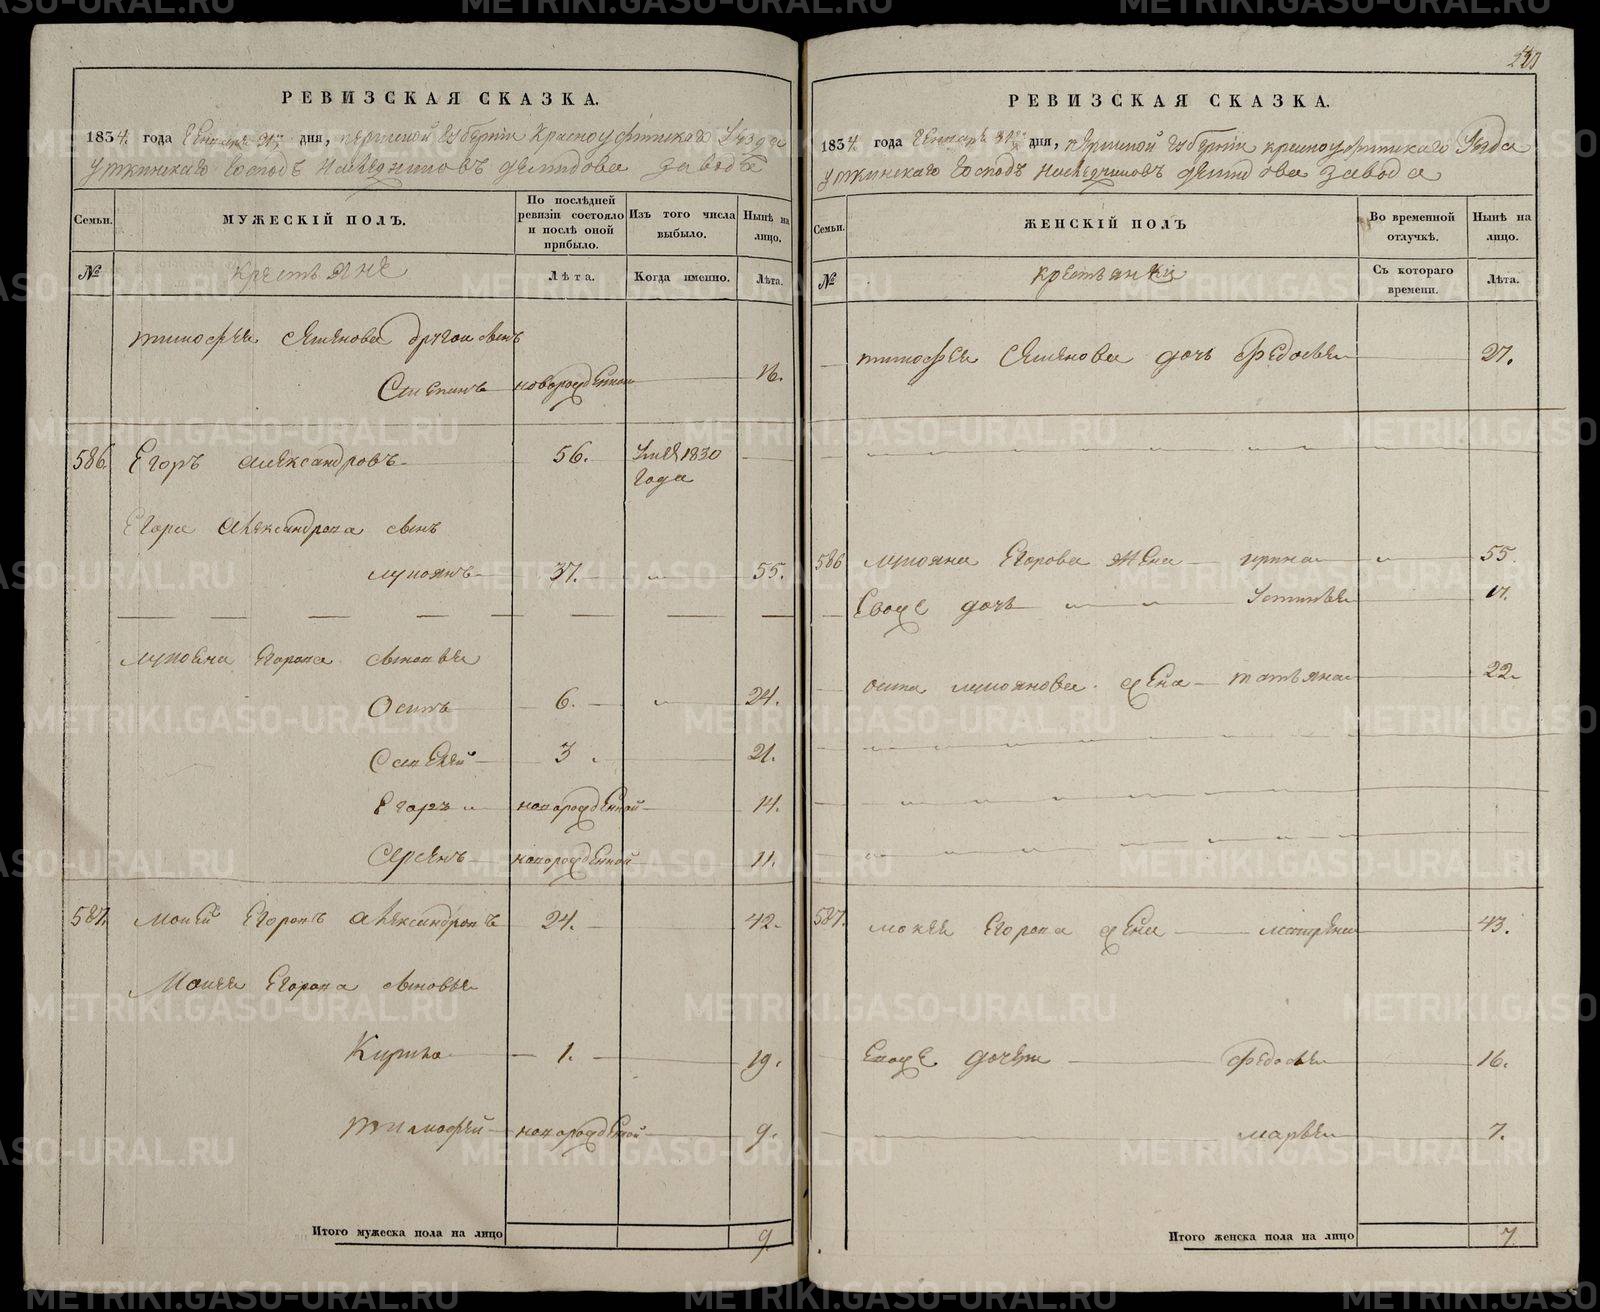 РЕВИЗСКАЯ СКАЗКА.
1834. года Генваря 31го дня, пермской губернiи Красноуфимскаго Уезда
уткинскаго Господъ Наследниковъ демидова завода
Семьи.
МУЖЕСКIЙ ПОЛЪ.
По послѣдней ревизiи состояло и послѣ оной прибыло.
Изъ того числа выбыло.
Нынѣ на лицо.
№
крестьяне
Лѣта.
Когда именно.
Лѣта.
тимофея Семенова другои сынъ
Степанъ новорожденной 16.
586. Егоръ александровъ 56. Умеръ 1830 года
Егора александрова сынъ
лукоянъ 37. 55.
лукояна Егорова сыновья
Осипъ 6. 24.
Савелей 3 21.
Егоръ новорожденной 14.
Сергей новорожденной 11.
587. мокей Егоровъ александровъ 24. 42.
Мокея Егорова сыновья
Кирила 1. 19.
тимофей новорожденной 9.
Итого мужеска пола на лицо 9.
РЕВИЗСКАЯ СКАЗКА.
1834. года Генваря 31го дня, пермской губернiи красноуфимскаго Уезда
уткинскаго Господъ наследниковъ демидова завода
Семьи.
ЖЕНСКIЙ ПОЛЪ
Во временной отлучкѣ.
Нынѣ на лицо.
№
крестьянки
Съ котораго времени.
Лѣта.
тимофея Семенова дочь Федосья 27.
586 лукояна Егорова жена ирина 55.
Евоже дочь Устинья 17.
осипа лукоянова жена татьяна 22.
587. мокея Егорова жена матрена 43.
Евоже дочери Федосья 16.
марья 7.
Итого женска пола на лицо 7
METRIKI.GASO-URAL.RU